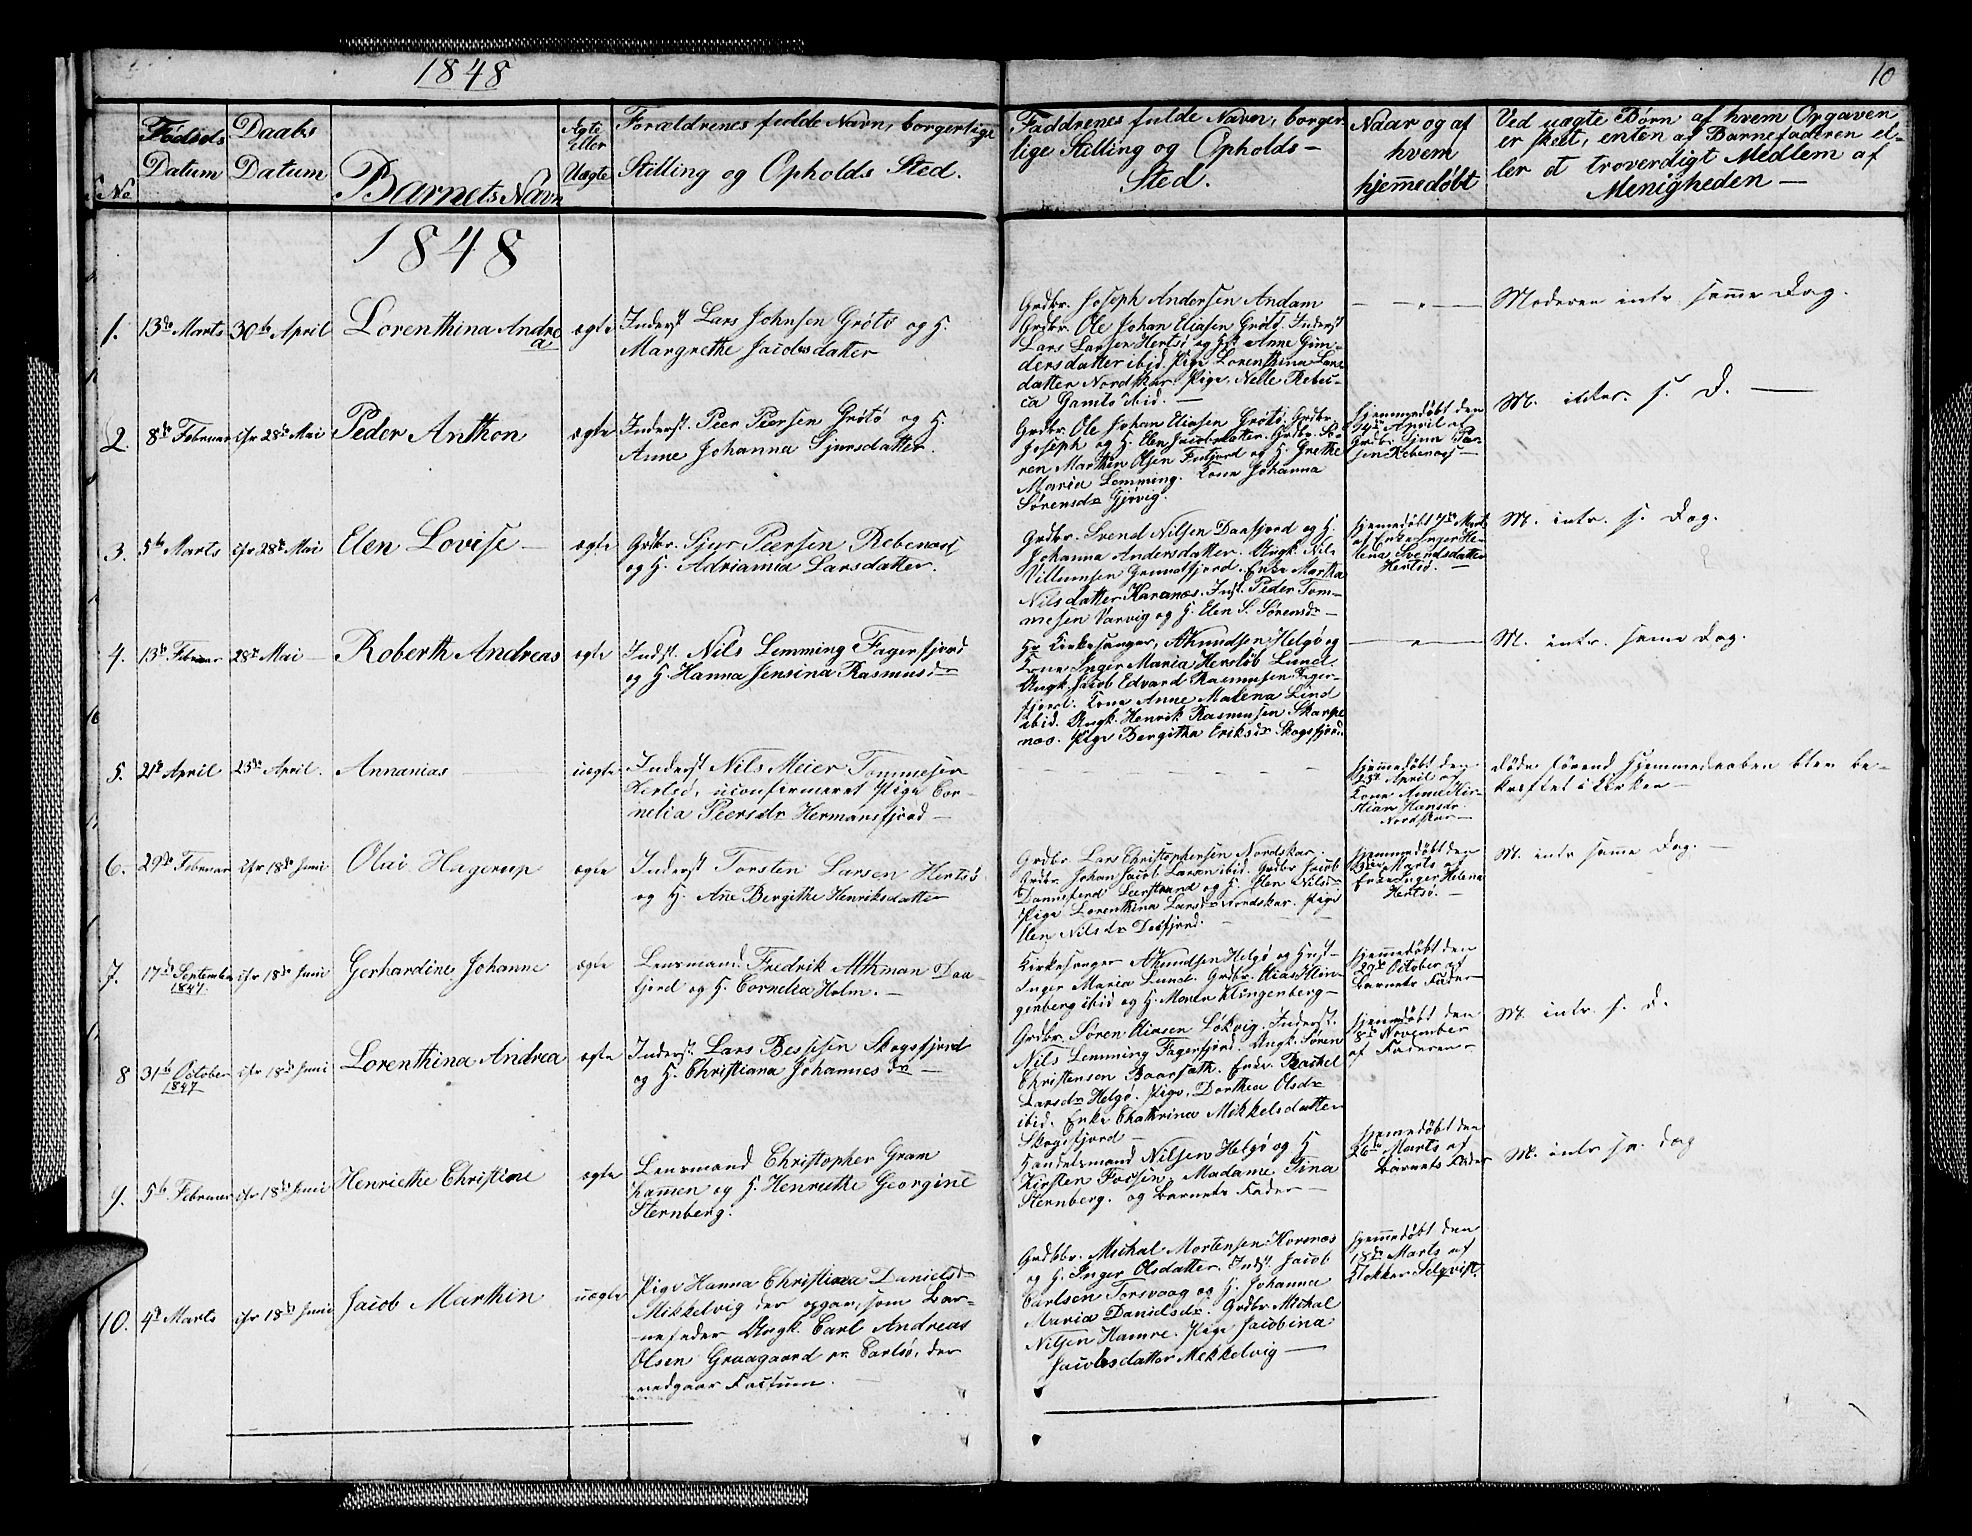 1848
10
No
Fødsels Datum
Daabs Datum
Barnets Navn
Ægte Eller Uægte
Forældrenes fulde Navn, borgerlige
Stilling og Opholds Sted.
Faddrenes fulde Navn, borger
lige Stilling og Opholds-
Sted.
Naar og af
hvem
hjemedøbt
Ved uægte Børn af hvem Opgaven
er skeet, enten af Barnefaderen el-
ler et troverdigt Medlem af
Menigheden
1848
1.
13de Marts
30te April
Lorenthina Andre
a
ægte
Inderst Lars Johnsen Grøtø og H.
Margrethe Jacobsdatter
Grdbr. Joseph Andersen Andam
Grdbr. Ole Johan Eliasen Grøtø. Inderst
Lars Larsen Hertsø og H. Anne Gun-
dersdatter ibid. Pige Lorenthina Lars
datter Nordskar. Pige, Nelle Rebec-
ca Gamts ibid.
Moderen intr. samme Dag.
2.
8de Februar
Cfr 28de Mai
Peder Anthon
ægte
Inderst. Peer Peersen Grøtø og H.
Anne Johanna Sjursdatter.
Grdbr. Ole Johan Eliasen Grøtø. Grdbr.
Joseph og H. Elen Jacobsdatter. Grdbr. Sø-
ren Marthin Olsen Futfjord og H. Grethe
Maria Lemming. Kone Johanna
Sørensdr Gjøvig.
Hjemmedøbt den
April af
Grdb. Sjur Peer-
sen Rebenæs
M. inter. s. D.
3.
5te Marts
Cfr 28de Mai
Elen Lovise
ægte
Grdbr. Sjur Peersen Rebenæs
og H. Adriamia Larsdatter.
Grdbr. Svend Nilsen Daafjord og H.
Johanna Andersdatter. Ungk. Nils
Villumsen Grundfjord. Enke Martha
Nilsdatter Karanæs. Inst. Peder Tom-
mesen Varvig og H. Elen S. Sørensdr
Hjemedøbt 7de Marts
af Enke Inger He-
lena Svendsdatter
Hertsø.
M. intr. s. Dag.
4.
13de Februar
28de Mai
Roberth Andreas
ægte
Indst. Nils Lemming Fagerfjord
og H. Hanna Jensina Rasmusdr
Hr Kirkesanger, AKnudsen Helgø og
Kone Inger Maria Herstøb Lund.
Ungk. Jacob Edvard Rasmussen Fager-
fjord. Kone Anne Malena Lind
ibid. Ungk. Henrik Rasmussen Skarpe
næs. Pige Bergitha Eriksdr Skogsfjord.
M. intr. samme Dag.
5.
21de April
25de April.
Annanias
uægte
Inderst Nils Meier Tommesen
Hertsø, uconfirmeret Pige Cor-
nelia Peersdr Hermansfjord
Hjemmedøbt den
April af
Kone Anne
Hansdr
Nordskar
Døde førend Hjemmedaaben blev be-
kræftet i Kirken
6.
29de Februar
Cfr 18de Juni
Olai Hagerup
ægte
Inderst Torsten Larsen Hertsø
og H. Ane Bergithe Henriksdatter
Grdbr Lars Christophersen Nordskar.
Grdbr. Johan Jacob Larsen ibid. Grdbr Jacob
Danneferd Leerstrand og H. Elen Nilsdr
Pige Lorenthina Larsdr Nordskar. Pige
Elen Nilsdr Daafjord.
Hjemmedøbt den
Marts af
Enke Inger Helena
Hertsø.
M. intr same Dag.
7.
17de September
1847.
Cfr 18de Juni
Gerhardine Johanne
ægte
Lensmand. Fredrik Altman Daa-
fjord og H. Cornelia Holm.
Kirkesanger AKnudsen Helgø og Hust.
Inger Maria Lund. Grdbr. Elias Klin-
genberg ibid og H. Maren Klingenberg
Hjemmedøbt den
29de October af
Barnets Fader
8
31te October
1847
Cfr 18de Juni
Lorenthina Andrea
ægte
Inderst. Lars Bessesen Skogsfjord
og H. Christiana Johannesdr
Grdbr. Søren Eliasen Løkvig. Inderst.
Nils Lemming Fagerfjord. Ungk. Søren
Christensen Baarsath. Enke Rachel
Larsdr Helgø. Pige, Dorthea Olsdr
ibid. Enke Chathrina Mikkelsdatter
Skogsfjord
Hjemedøbt den
8de November
af Faderen
M. intr. s. D.
9.
5te Februar
Cfr 18de Juni
Henriethe Christine
ægte
Lensmand Christopher Gram
Hammen og H. Henriethe Georgine
Sternberg.
Handelsmand Nilsen Helgø og H
Kirsten Figen, Madame Tina
Sternberg. og Barnets Fader
Hjemedøbt den
26de Marts af
Barnets Fader
M. intr sa. Dag
10.
4de Marts
Cfr 18de Juni
Jacob Marthin
uægte
Pige Hanna Christina Danielsdr
Mikkelvig der opgav, som Bar-
nefader Ungk. Carl Andreas
Olsen Graagaard pr. Carlsø, der
vedgaar Factum.
Grdbr. Michal Mortensen Horsnæs
og H. Inger Olsdatter. Indst. Jacob
Carlsen Torsvaag og H. Johanna
Maria Danielsdr. Grdbr Michal
Nilsen Hamre. Pige Jacobina
Jacobsdatter Mikkelvig
Hjemmedøbt den
18de Marts af
Klokker Selqvist.